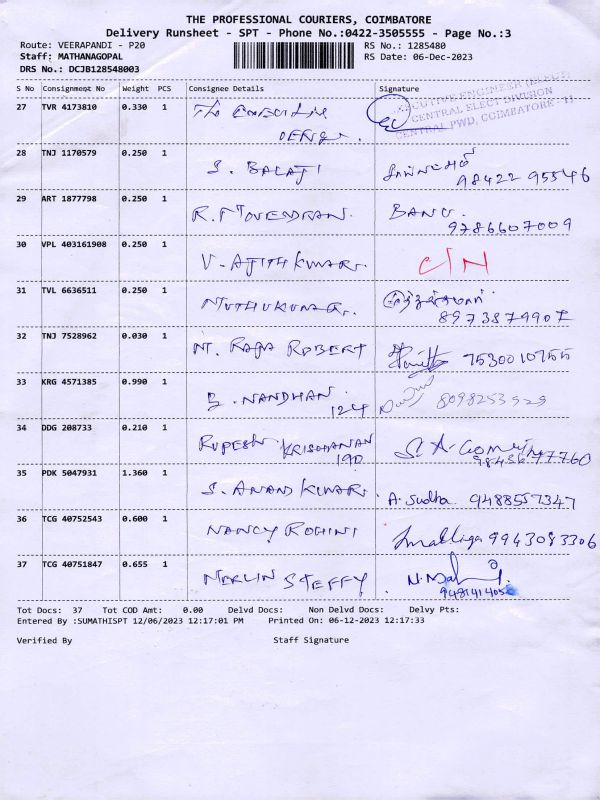 THE PROFESSIONAL COURIERS, COIMBATORE
Delivery Runsheet - SPT - Phone No.:0422-3505555 - Page No.:3
Route: VEERAPANDI - P20
RS No.: 1285480
Staff: MATHANAGOPAL
RS Date: 06-Dec-2023
DRS No.: DCJB128548003
S No Consignment No Weight PCS Consignee Details Signature
27 TVR 4173810 0.330 1 The Executive
EXECUTIVE ENGINEER (ELECT)
CENTRAL ELECT DIVISION
CENTRAL PWD, COIMBATORE - 11
28 TNJ 1170579 0.250 1 S. BALAJI
98422 95546
29 ART 1877798 0.250 1 R. MOVENDRAN. BANU.
9786607009
30 VPL 403161908 0.250 1 V. AJITH KUMAR. C/N
31 TVL 6636511 0.250 1 MUTHUKUMAR. முத்துக்குமார்
8973879907
32 TNJ 7528962 0.030 1 M. RAJA ROBERT 7530010755
33 KRG 4571385 0.990 1 B. NANDHAN
124 8098253929
34 DDG 208733 0.210 1 RUPESH KRISHANAN
190
S. A. Gomathy
9843677760
35 PDK 5047931 1.360 1 S. ANAND KUMAR. A. Sudha 9488557347
36 TCG 40752543 0.600 1 NANCY ROHINI Jmalliga 9943083306
37 TCG 40751847 0.655 1 MERLIN STEFFY
Tot Docs: 37 Tot COD Amt: 0.00 Delvd Docs: Non Delvd Docs: Delvy Pts:
Entered By :SUMATHISPT 12/06/2023 12:17:01 PM Printed On: 06-12-2023 12:17:33
Verified By Staff Signature